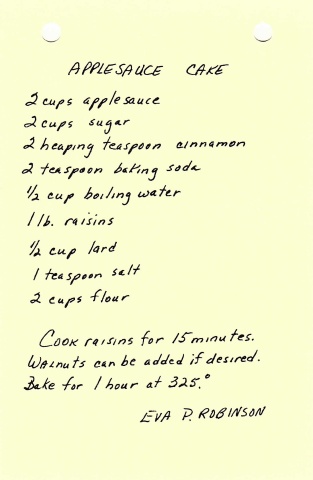 APPLESAUCE CAKE
2 cups applesauce
2 cups sugar
2 heaping teaspoon cinnamon
2 teaspoon baking soda
1/2 cup boiling water
1 lb. raisins
1/2 cup lard
1 teaspoon salt
2 cups flour
Cook raisins for 15 minutes.
Walnuts can be added if desired.
Bake for 1 hour at 325.°
EVA P. ROBINSON